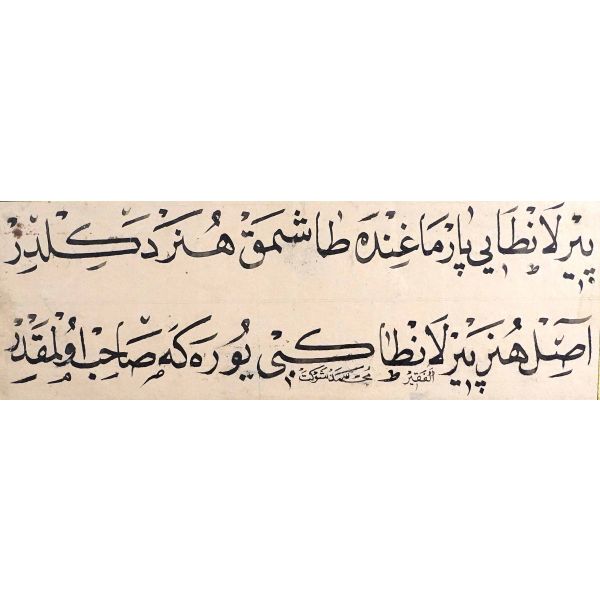 پيرلانطايى پارماغنده طاشمق هنر دكلدر
اصل هنر پيرلانطا كبى يوره كه صاحب اولمقدر
الفقير محمد شوكت